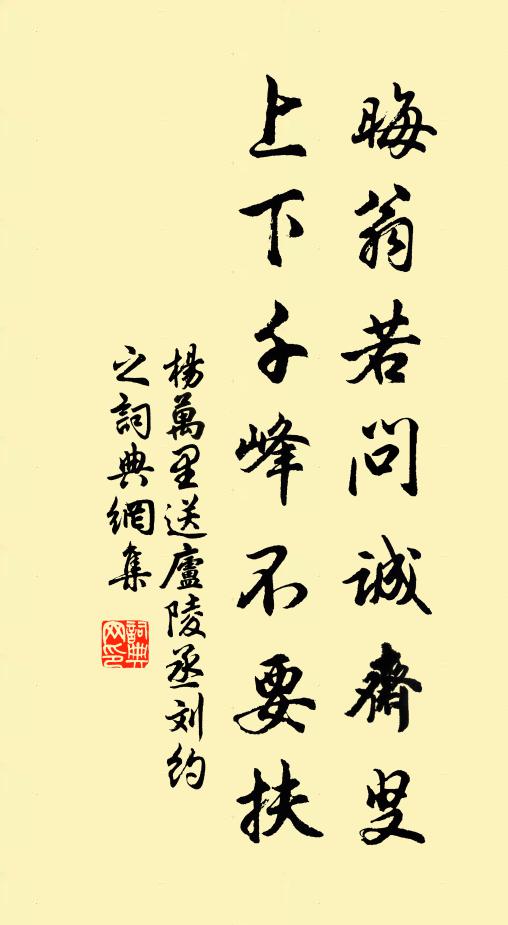 晦翁若问诚齋叟
上下千峰不要扶
楊萬里送廬陵丞刘约
之詞典網集
詞典网印